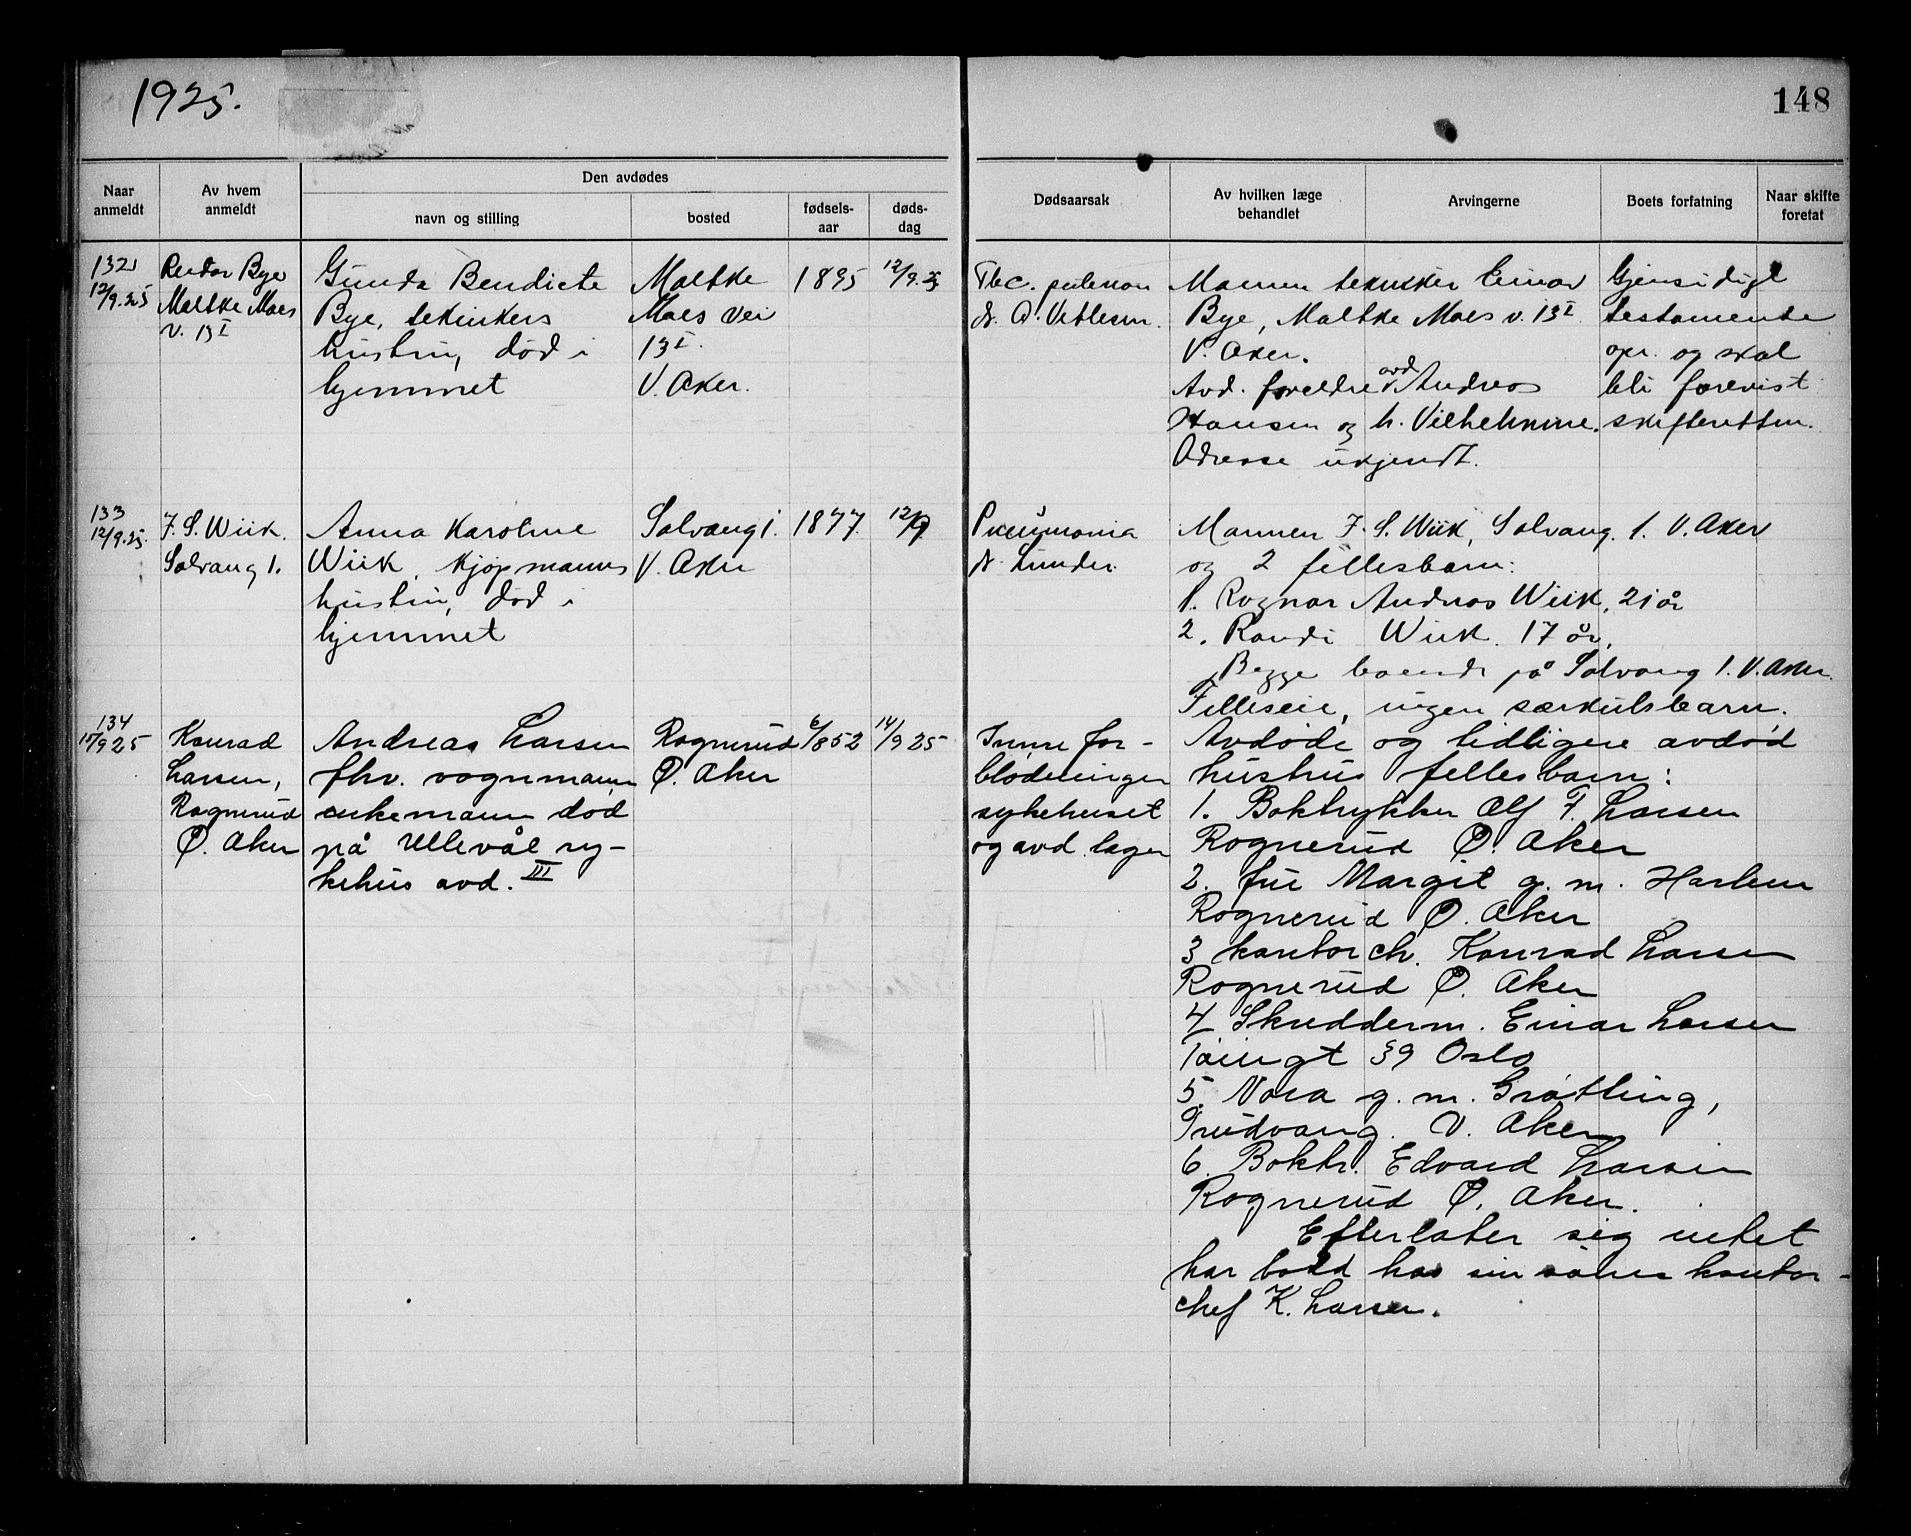 1925.
148
Naar anmeldt
Av hvem anmeldt
Den avdødes
navn og stilling
bosted
fødsels-aar
døds-dag
Dødsaarsak
Av hvilken læge behandlet
Arvingerne
Boets forfatning
Naar skifte foretat
132
12/9.25
Reidar Bye
Moltke Moes
v. 13 I
Gunda Bendicte
Bye, teknikers
hustru, død i
hjemmet
Moltke
Moes vei
13 I.
V. Aker.
1895
12/9.25
Tbc. pulmon
dr. A. Vetlesen.
Mannen tekniker Einar
Bye, Moltke Moes v. 13 I
V. Aker.
Avd. foreldre avd Andreas
Hansen og h. Vilhelmine.
Adresse ukjendt.
Gjensidigt
testamente
opr. og skal
bli forevist
skifteretten.
133
12/9.25.
F. S. Wiik.
Solvang 1.
Anna Karoline
Wiik, kjøpmanns
hustru, død i
hjemmet
Solvang 1.
V. Aker
1877.
12/9
Pneumonia
dr. Lunder.
Mannen F. S. Wiik, Solvang. 1. V. Aker
og 2 fellesbarn:
1. Ragnar Andreas Wiik, 21 år
2. Randi Wiik. 17 år.
Begge boende på Solvang 1. V. Aker.
Felleseie, ingen særkulsbarn.
134
15/9 25
Konrad
Larsen,
Rognerud
Ø. Aker
Andreas Larsen
fhv. vognmann,
enkemann død
på Ullevål sy-
kehus avd. III
Rognerud
Ø. Aker
6/852
14/9 25
Innre for-
blødninger
sykehuset
og avd. læger
Avdøde og tidligere avdød
hustrus fellesbarn:
1. Boktrykker Alf F. Larsen
Rognerud Ø. Aker
2. fru Margit g. m. Harlem
Rognerud Ø. Aker
3 kontorch. Konrad Larsen
Rognerud Ø. Aker
4 Skredderm. Einar Larsen
Tøiengt 39 Oslo
5. Nora g. m. Grøtling,
Trudvang. V. Aker
6. Boktr. Edvard Larsen
Rognerud Ø. Aker.
Efterlater sig intet
har bodd hos sin sønn kontor-
chef K. Larsen.